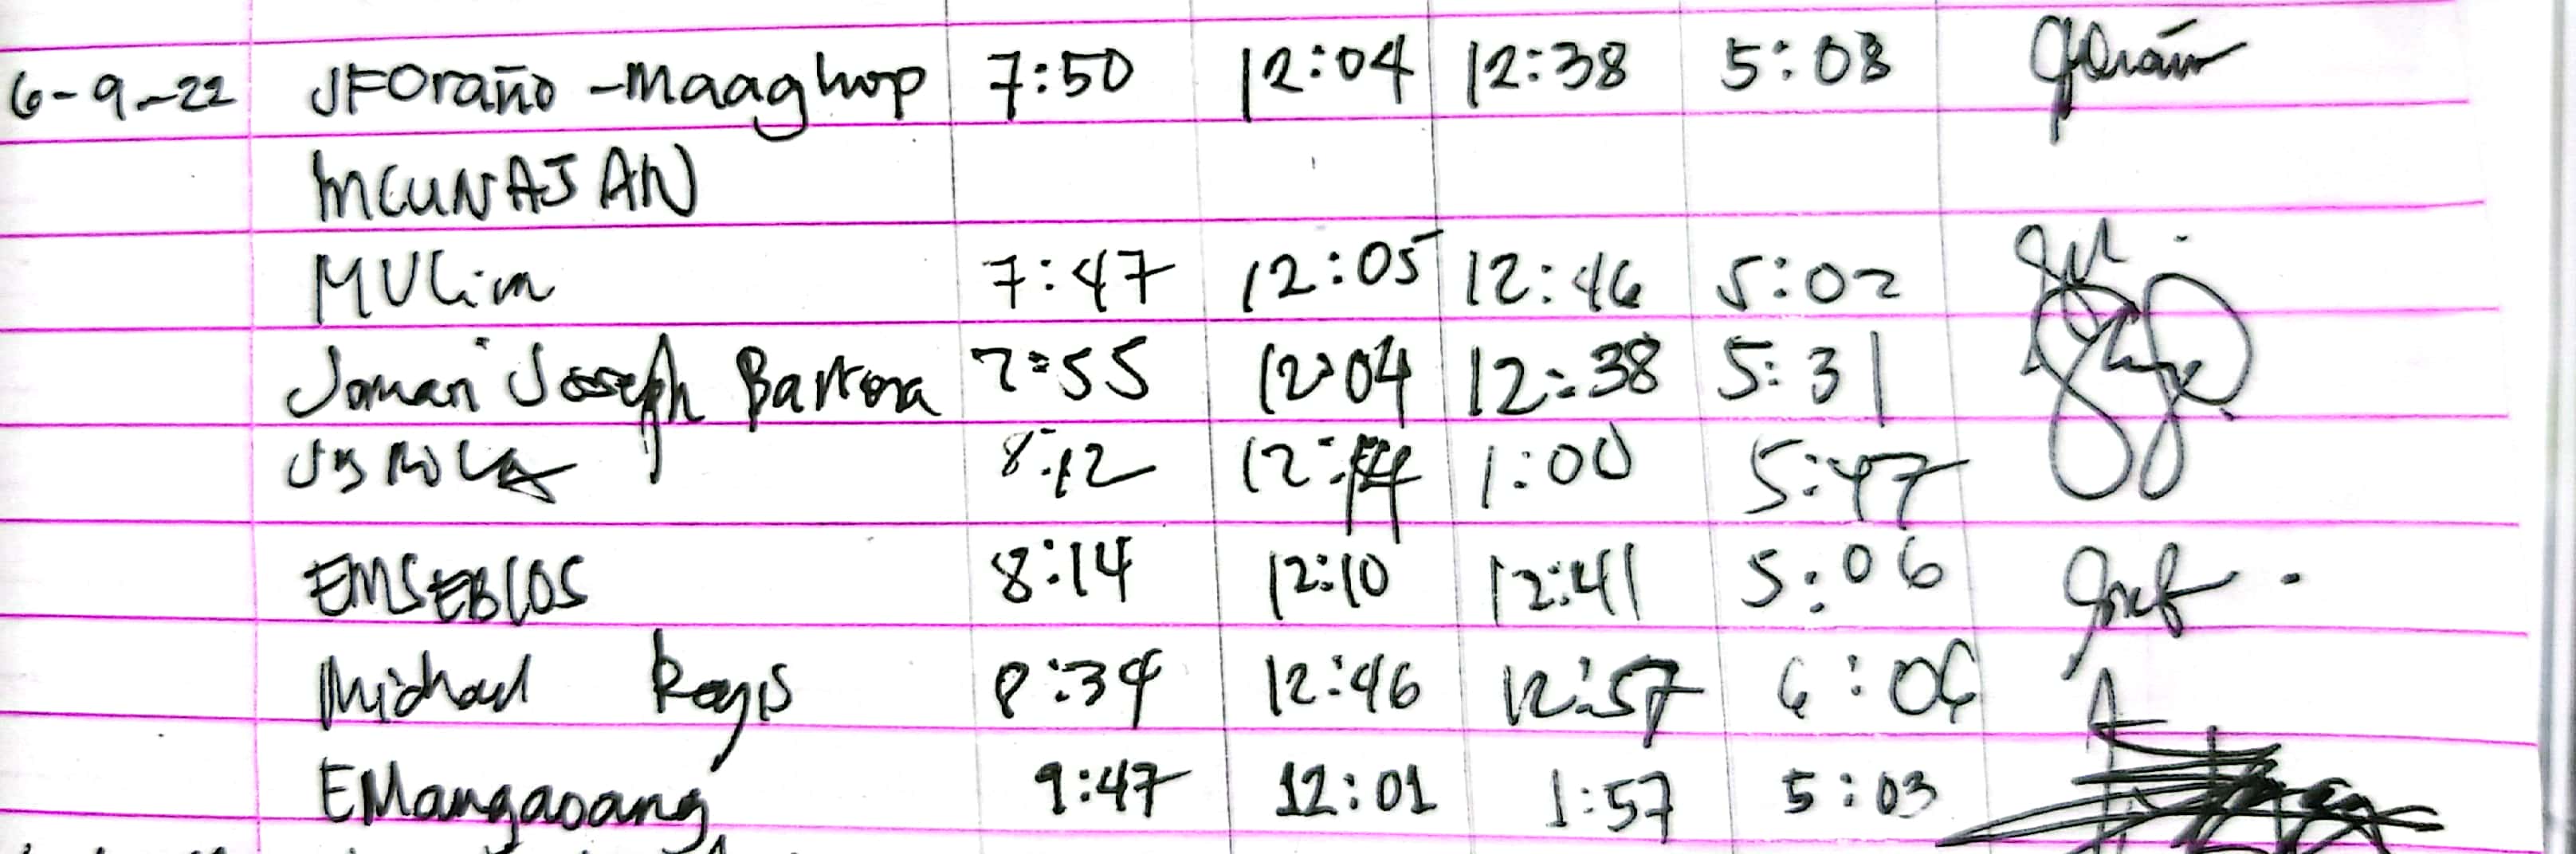 6-9-22 JFOraño -Maaghop 7:50 12:04 12:38 5:08
MCUNAJAN
MVLim 7:47 12:05 12:46 5:02
Jomari Joseph Bartona 7:55 12:04 12:38 5:31
8:12 12:14 1:00 5:47
EMSEBLOS 8:14 12:10 12:41 5:06
Michael Regis 8:34 12:46 12:57 6:06
EMangaoang 9:47 12:01 1:57 5:03